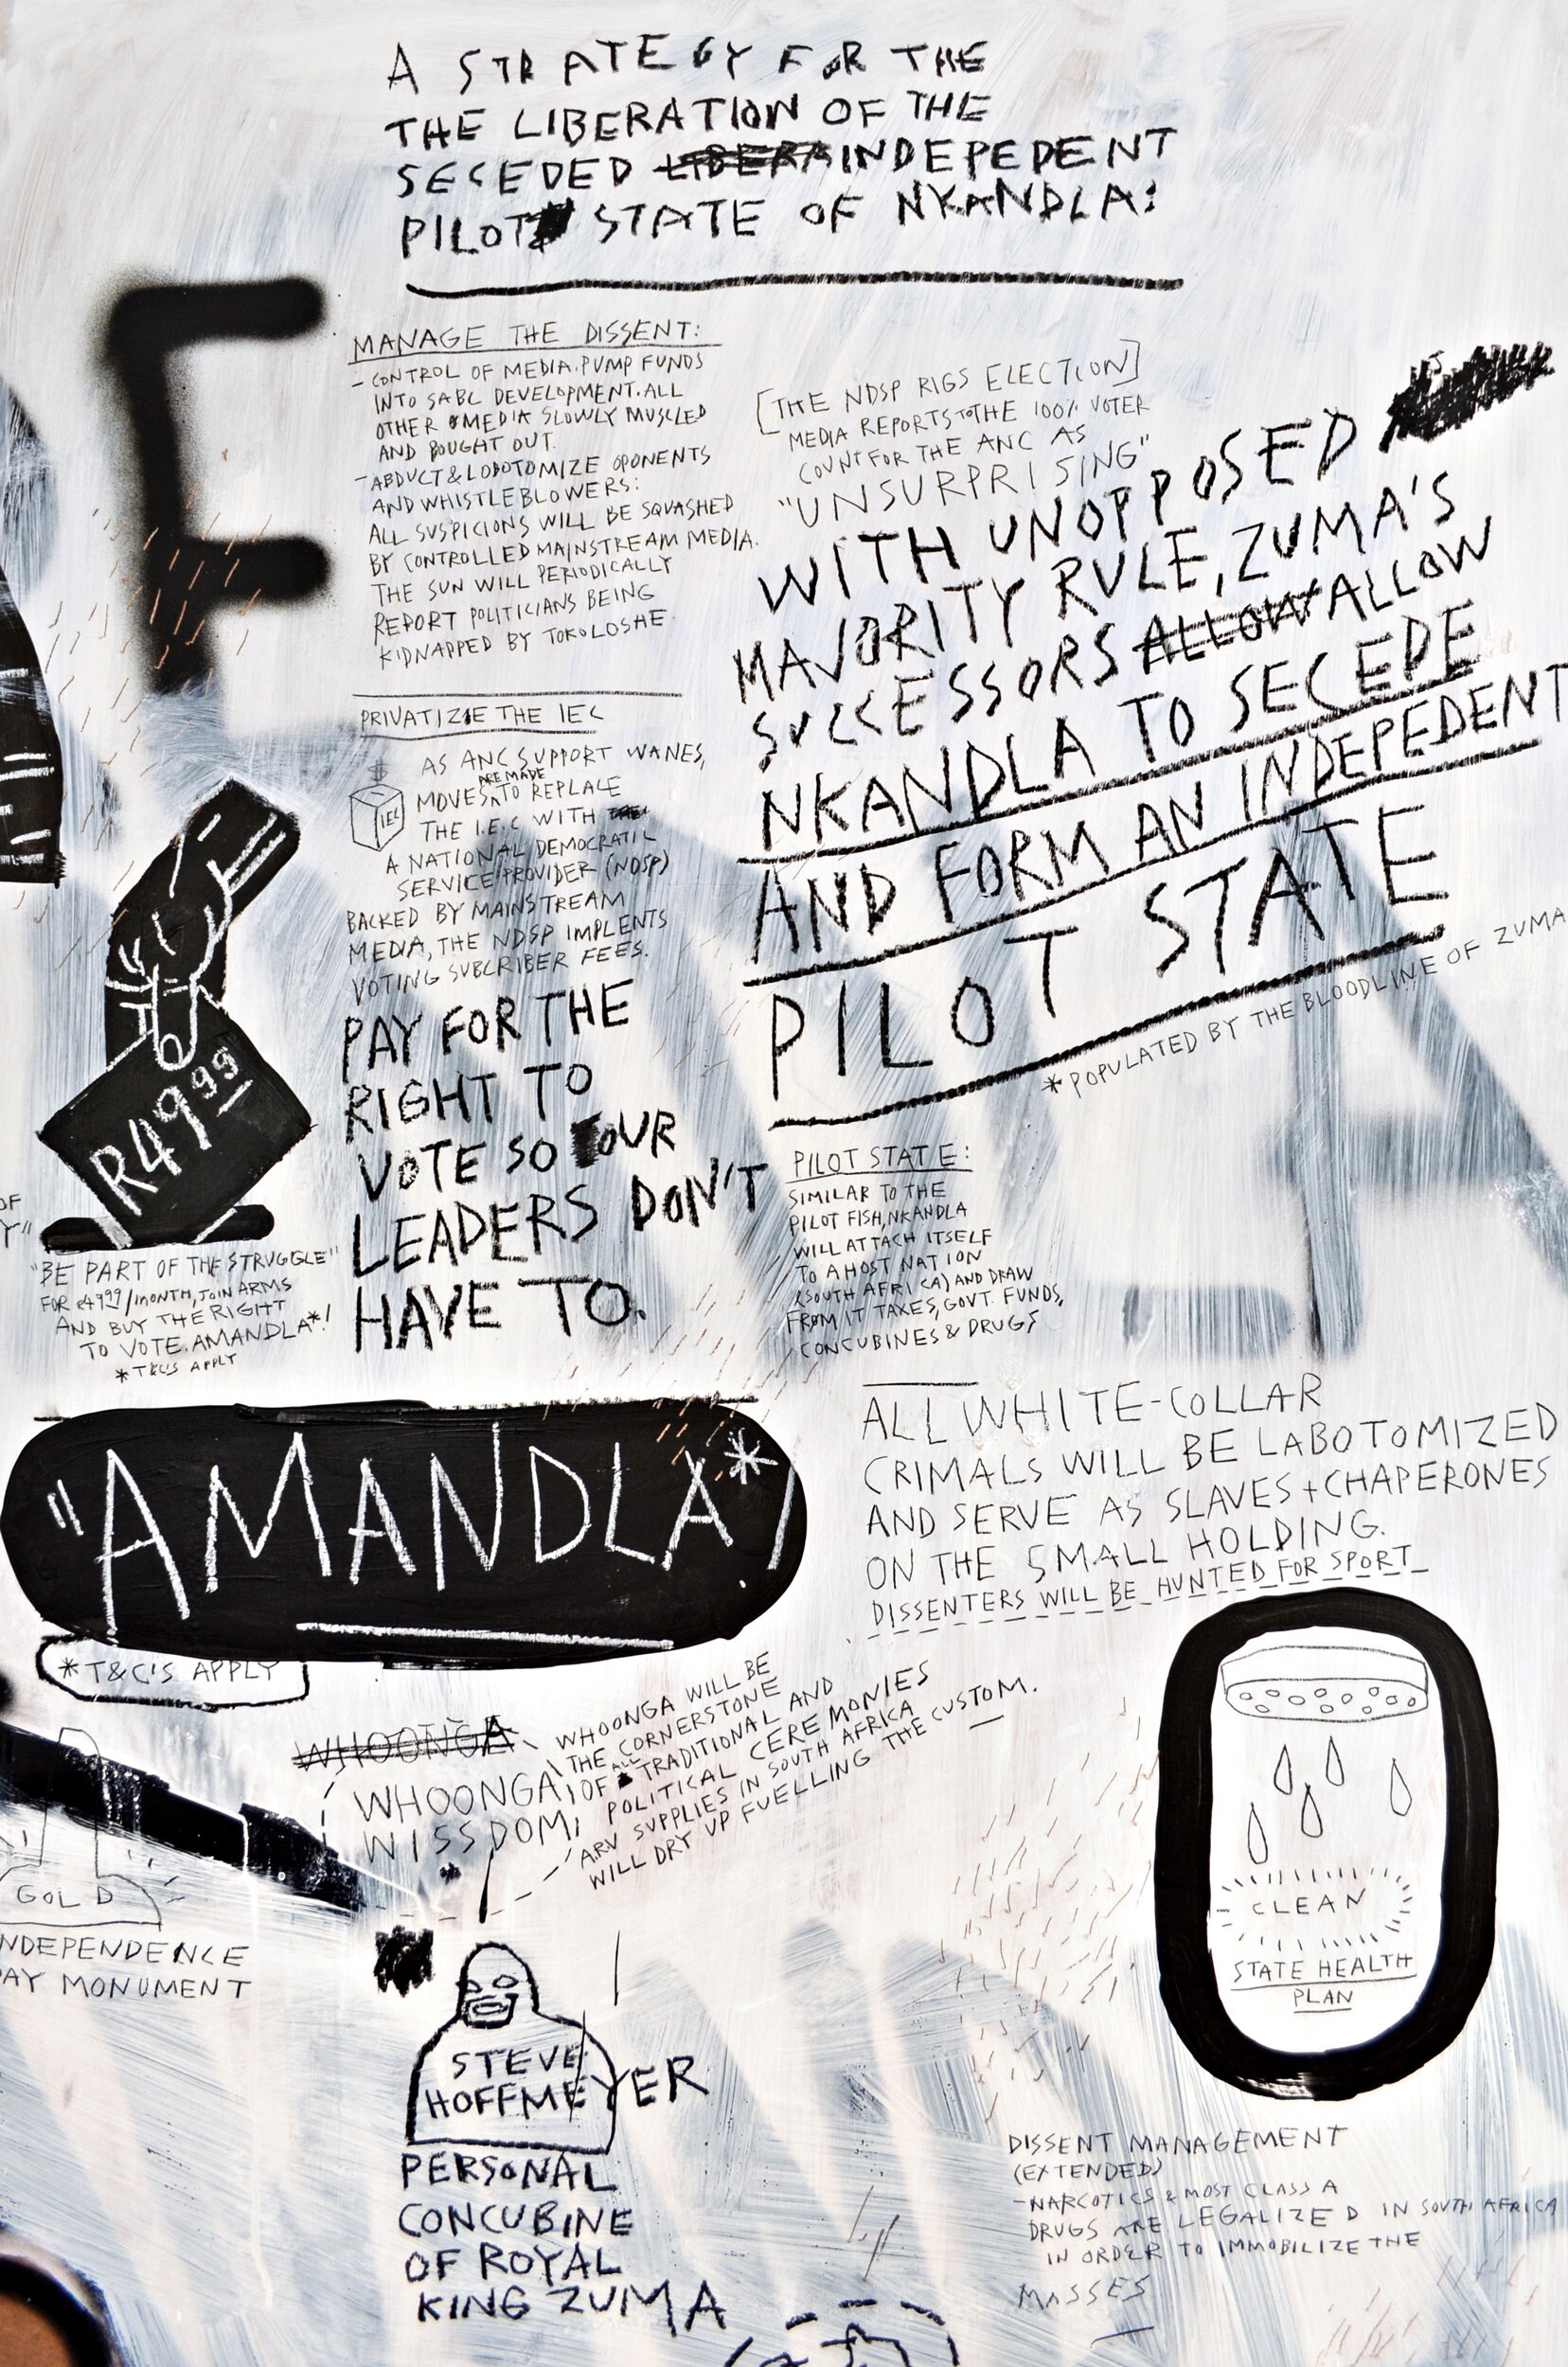 A STRATEGY FOR THE
THE LIBERATION OF THE
SECEDED LIBERA INDEPEDENT
PILOT STATE OF NKANDLA:
MANAGE THE DISSENT:
- CONTROL OF MEDIA. PUMP FUNDS
INTO SABC DEVELOPMENT. ALL
OTHER MEDIA SLOWLY MUSCLED
AND BOUGHT OUT.
- ABDUCT & LOBOTOMIZE OPONENTS
AND WHISTLEBLOWERS:
ALL SUSPICIONS WILL BE SQUASHED
BY CONTROLLED MAINSTREAM MEDIA.
THE SUN WILL PERIODICALLY
REPORT POLITICIANS BEING
KIDNAPPED BY TOKOLOSHE.
PRIVATIZE THE IEC
$
IEC
AS ANC SUPPORT WANES,
ARE MADE
MOVES TO REPLACE
THE I.E.C WITH THE
A NATIONAL DEMOCRATIC
SERVICE PROVIDER (NDSP)
BACKED BY MAINSTREAM
MEDIA, THE NDSP IMPLENTS
VOTING SUBCRIBER FEES.
PAY FOR THE
RIGHT TO
VOTE SO OUR
LEADERS DON'T
HAVE TO.
[THE NDSP RIGS ELECTION]
MEDIA REPORTS TO THE 100% VOTER
COUNT FOR THE ANC AS
"UNSURPRISING"
WITH UNOPPOSED
MAJORITY RULE, ZUMA'S
SUCCESSORS ALLOW ALLOW
NKANDLA TO SECEDE
AND FORM AN INDEPEDENT
PILOT STATE
*POPULATED BY THE BLOODLINE OF ZUMA
R49.99
OF
Y"
"BE PART OF THE STRUGGLE"
FOR R49.99/MONTH, JOIN ARMS
AND BUY THE RIGHT
TO VOTE. AMANDLA*!
*T&C'S APPLY
PILOT STATE:
SIMILAR TO THE
PILOT FISH, NKANDLA
WILL ATTACH ITSELF
TO A HOST NATION
(SOUTH AFRICA) AND DRAW
FROM IT TAXES, GOVT. FUNDS,
CONCUBINES & DRUGS
"AMANDLA*!
*T&C'S APPLY
ALL WHITE-COLLAR
CRIMALS WILL BE LABOTOMIZED
AND SERVE AS SLAVES + CHAPERONES
ON THE SMALL HOLDING.
DISSENTERS WILL BE HUNTED FOR SPORT
WHOONGA
WHOONGA
WISSDOM
WHOONGA WILL BE
THE CORNERSTONE
OF ALL TRADITIONAL AND
POLITICAL CEREMONIES
ARV SUPPLIES IN SOUTH AFRICA
WILL DRY UP FUELLING THE CUSTOM.
GOLD
NDEPENDENCE
AY MONUMENT
CLEAN
STATE HEALTH
PLAN
STEVE
HOFFMEYER
PERSONAL
CONCUBINE
OF ROYAL
KING ZUMA
DISSENT MANAGEMENT
(EXTENDED)
- NARCOTICS & MOST CLASS A
DRUGS ARE LEGALIZED IN SOUTH AFRICA
IN ORDER TO IMMOBILIZE THE
MASSES